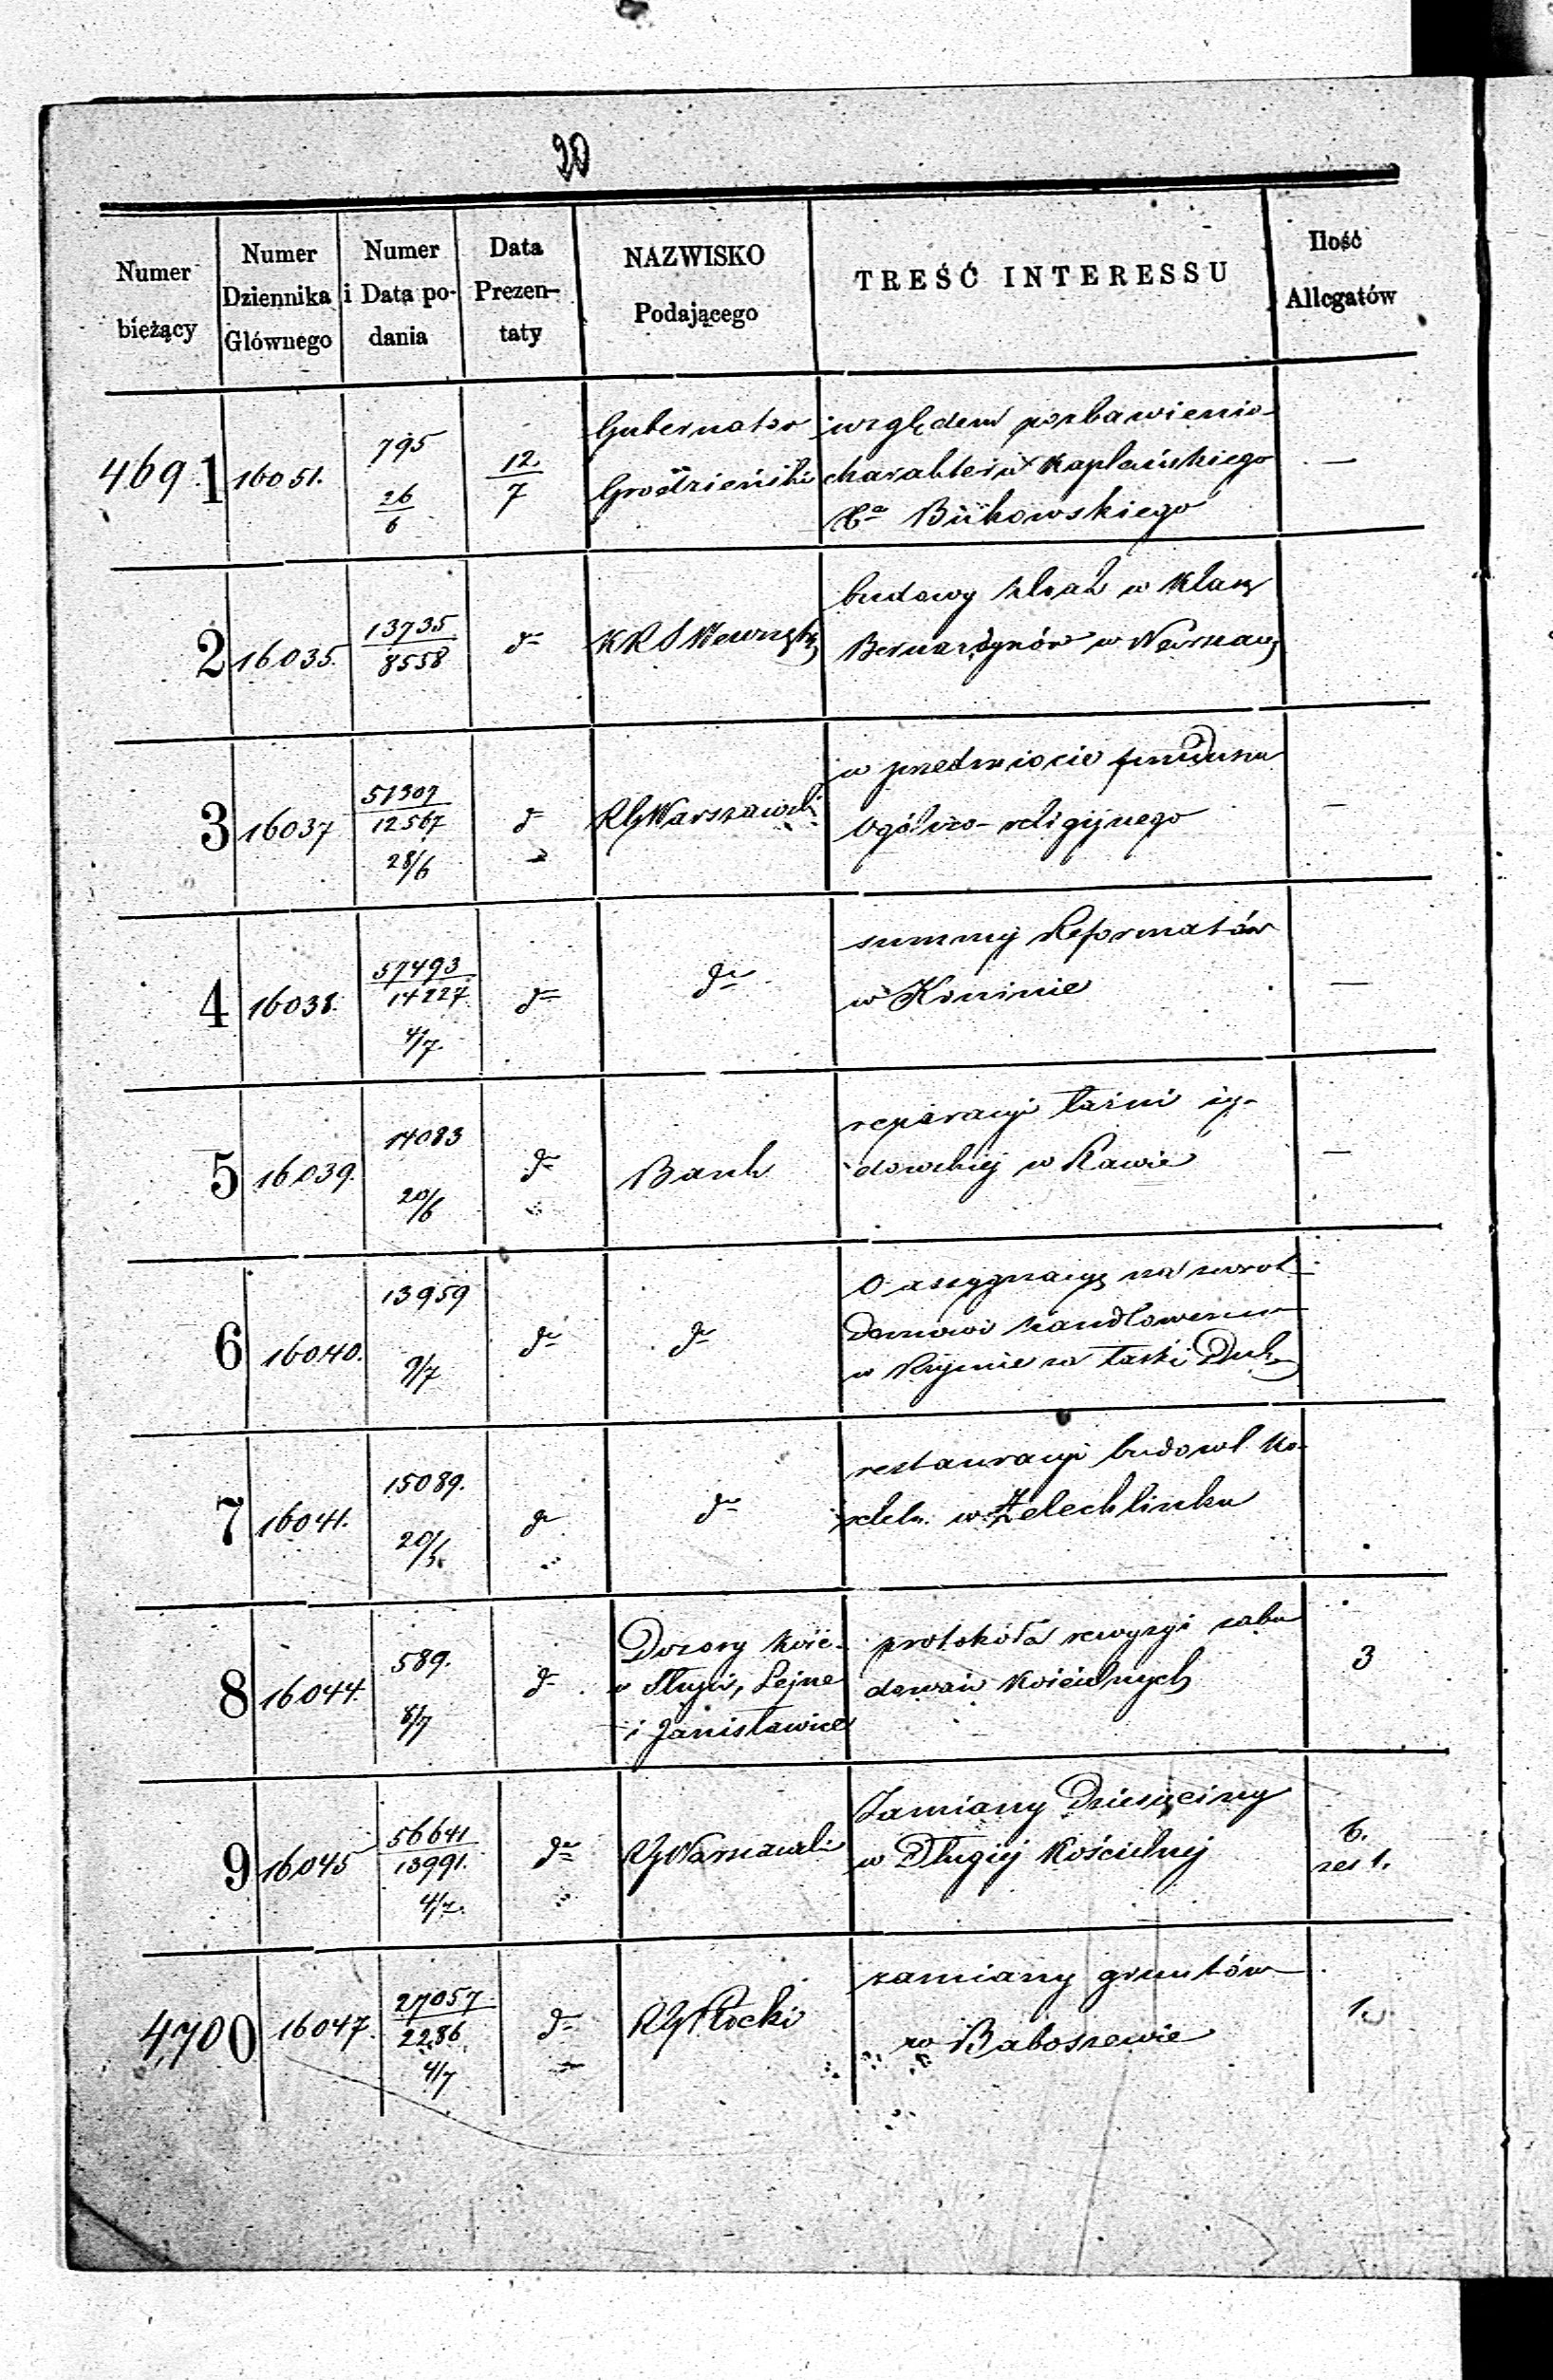 20
Numer bieżący | Numer Dziennika Głównego | Numer i Data podania | Data Prezentaty | NAZWISKO Podającego | TREŚĆ INTERESSU | Ilość Allegatów
4691 | 16051. | 795 26/6 | 12./7 | Gubernator Grodzieński | względem pozbawienia charakteru Kapłańskiego Xa Bukowskiego | —
2 | 16035. | 13735/8558 | do | KRS Wewnętrz | budowy szkoł w Klasz Bernardynów w Warszaw
3 | 16037 | 51307/12567 28/6 | do | RG Warszawski | w przedmiocie funduszu Ogólno-religijnego | —
4 | 16038. | 57493/14227. 4/7. | do | do | summy Reformatów w Koninie | —
5 | 16039. | 14083 20/6 | do | Bank | reparacyi łaźni ży- dowskiej w Rawie | —
6 | 16040. | 13959 9/7 | do | do | O assygnacyę na zwrot Domowi handlowemu w Rzymie za łaski Duch
7 | 16041. | 15089. | do | do | restauracyi budowl Ko-ścieln. w Żelechlinku
8 | 16044. | 589. 8/7 | do | Dozory Kośc. i Janisławice | protokoła rewyzyi zabu dowań Kościelnych | 3
9 | 16045 | 56641/13991. 4/7. | do | RG Warszawski | Zamiany Dziesięciny w Długiej Kościelnej | 6.
4700 | 16047. | 27057/2286. 4/7 | do | RG Płocki | zamiany gruntów w Baboszewie | 1.